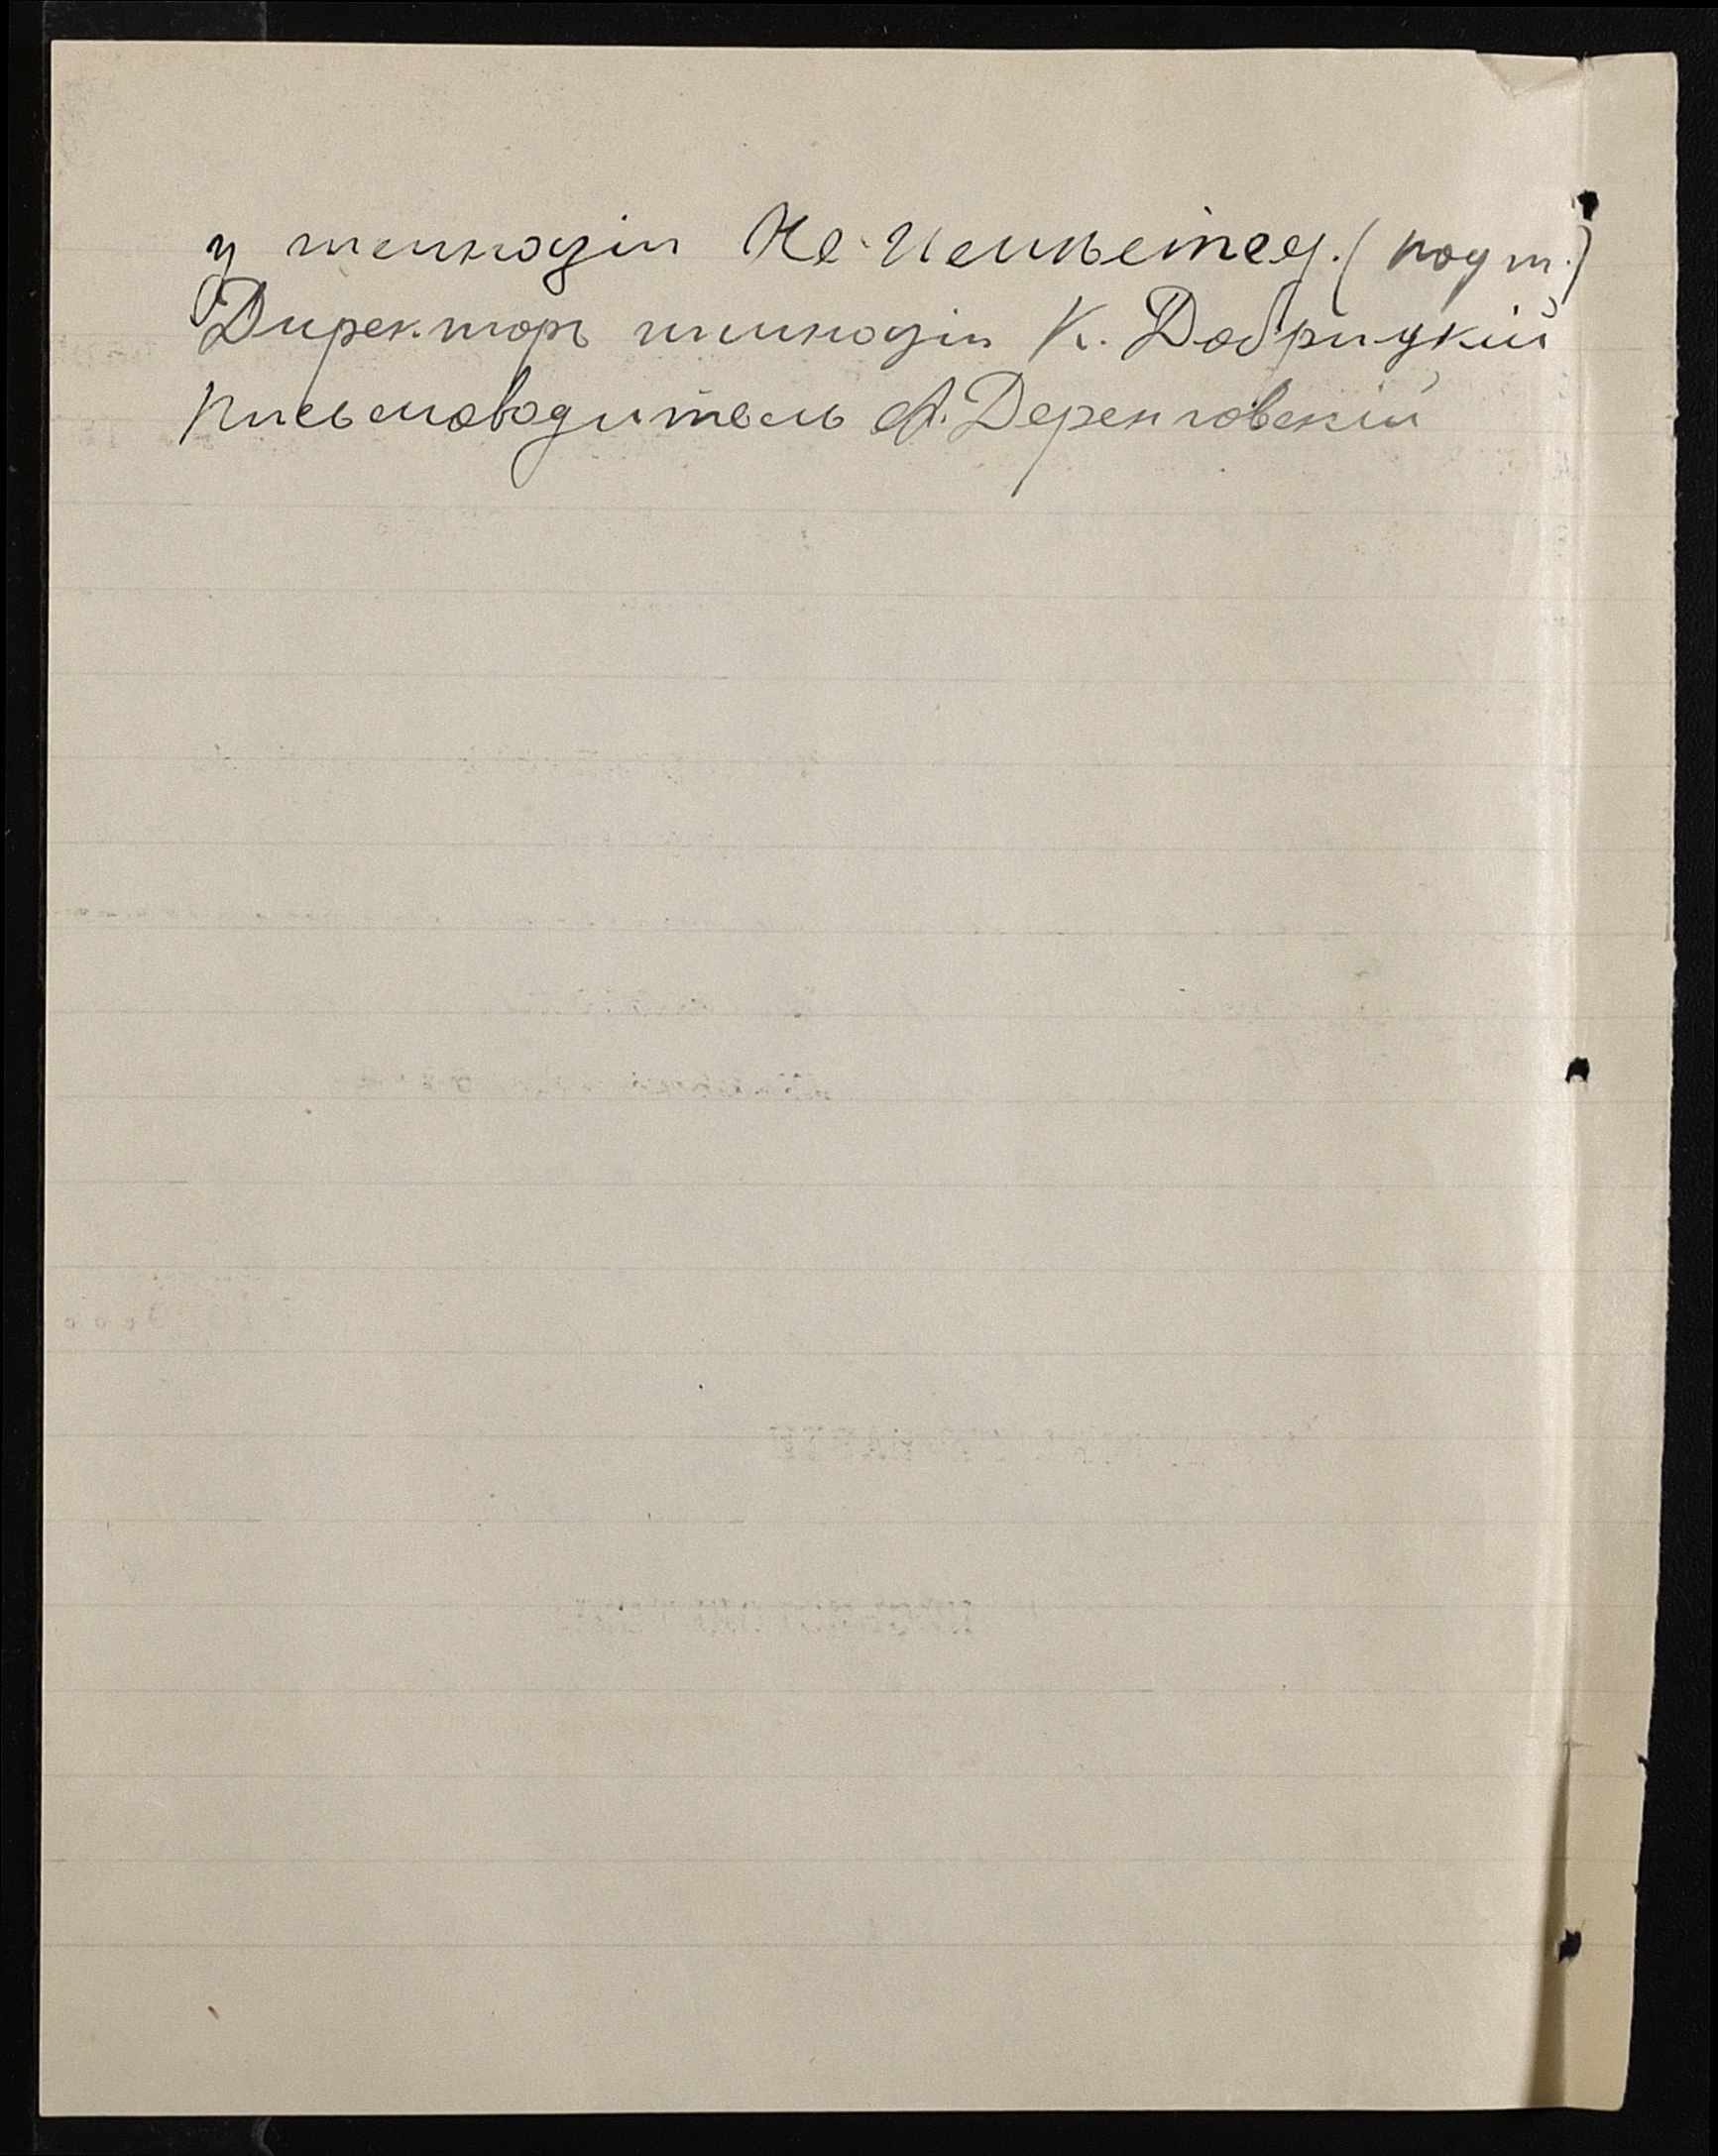 у гимназіи (подт.)
Директоръ гимназіи К. Добрицкій
Письмоводитель А. Деренговскій